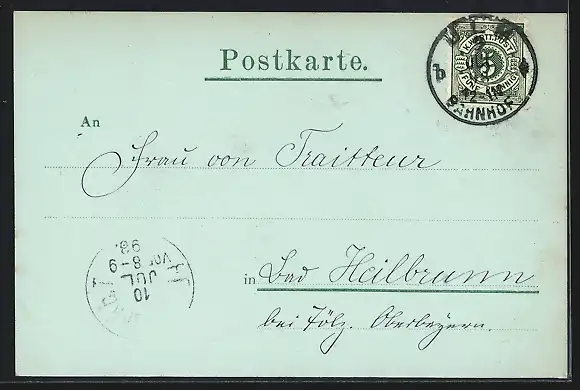 Postkarte.
ULM
K. WÜRTT. POST
5
FÜNF PFENNIG
b
BAHNHOF
An
Frau von Traitteur
in Bad Heilbrunn
bei Tölz. Oberbayern.
10
JUL
VOR 8-9
98.